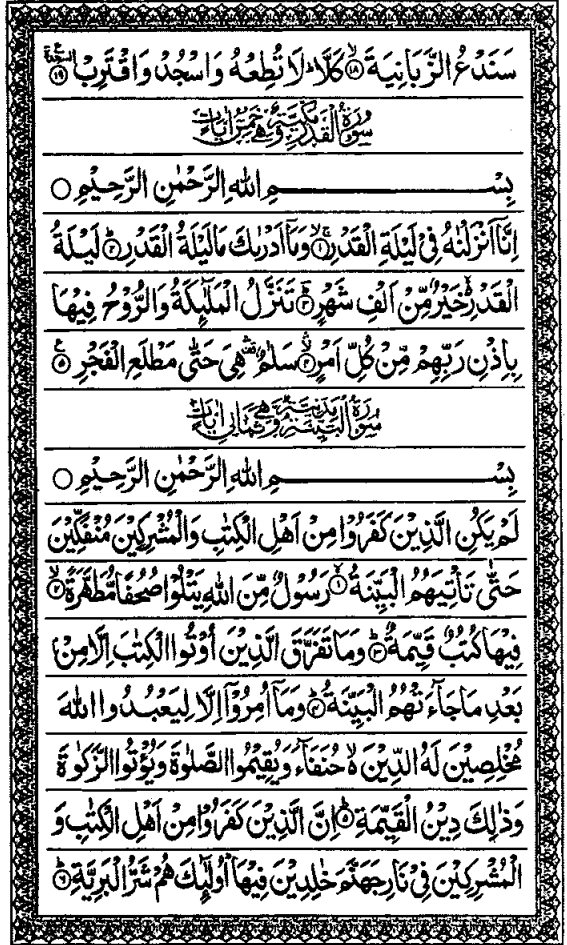 سَنَدْعُ الزَّبَانِيَةَ ۙ‏﴿۱۸﴾ كَلَّا ؕ لَا تُطِعْهُ وَاسْجُدْ وَاقْتَرِبْ ﴿۱۹﴾
سُوْرَةُ الْقَدْرِ مَكِّيَّةٌ وَّهِىَ خَمْسُ اٰيَاتٍ
بِسْمِ اللهِ الرَّحْمٰنِ الرَّحِيْمِ ○
اِنَّاۤ اَنْزَلْنٰهُ فِيْ لَيْلَةِ الْقَدْرِ ﴿۱﴾ وَمَاۤ اَدْرٰىكَ مَا لَيْلَةُ الْقَدْرِ ؕ﴿۲﴾ لَيْلَةُ
الْقَدْرِ ۙ خَيْرٌ مِّنْ اَلْفِ شَهْرٍ ؕ﴿۳﴾ تَنَزَّلُ الْمَلٰٓئِكَةُ وَالرُّوْحُ فِيْهَا
بِاِذْنِ رَبِّهِمْ مِّنْ كُلِّ اَمْرٍ ۙ﴿۴﴾ سَلٰمٌ ۛ هِيَ حَتّٰى مَطْلَعِ الْفَجْرِ ﴿۵﴾
سُوْرَةُ الْبَيِّنَةِ مَدَنِيَّةٌ وَّهِىَ ثَمَانِيْ اٰيَاتٍ
بِسْمِ اللهِ الرَّحْمٰنِ الرَّحِيْمِ ○
لَمْ يَكُنِ الَّذِيْنَ كَفَرُوْا مِنْ اَهْلِ الْكِتٰبِ وَالْمُشْرِكِيْنَ مُنْفَكِّيْنَ
حَتّٰى تَاْتِيَهُمُ الْبَيِّنَةُ ۙ﴿۱﴾ رَسُوْلٌ مِّنَ اللهِ يَتْلُوْا صُحُفًا مُّطَهَّرَةً ۙ﴿۲﴾
فِيْهَا كُتُبٌ قَيِّمَةٌ ؕ﴿۳﴾ وَمَا تَفَرَّقَ الَّذِيْنَ اُوْتُوا الْكِتٰبَ اِلَّا مِنْۢ
بَعْدِ مَا جَآءَتْهُمُ الْبَيِّنَةُ ؕ﴿۴﴾ وَمَاۤ اُمِرُوْۤا اِلَّا لِيَعْبُدُوا اللهَ
مُخْلِصِيْنَ لَهُ الدِّيْنَ ۙ حُنَفَآءَ وَيُقِيْمُوا الصَّلٰوةَ وَيُؤْتُوا الزَّكٰوةَ
وَذٰلِكَ دِيْنُ الْقَيِّمَةِ ؕ﴿۵﴾ اِنَّ الَّذِيْنَ كَفَرُوْا مِنْ اَهْلِ الْكِتٰبِ وَ
الْمُشْرِكِيْنَ فِيْ نَارِ جَهَنَّمَ خٰلِدِيْنَ فِيْهَا ؕ اُولٰٓئِكَ هُمْ شَرُّ الْبَرِيَّةِ ؕ﴿۶﴾